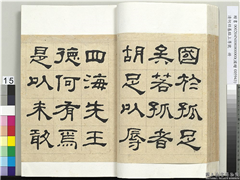 國於孤足
矣若孤者
胡足以辱
四海先王
德何有焉
是以未敢
15